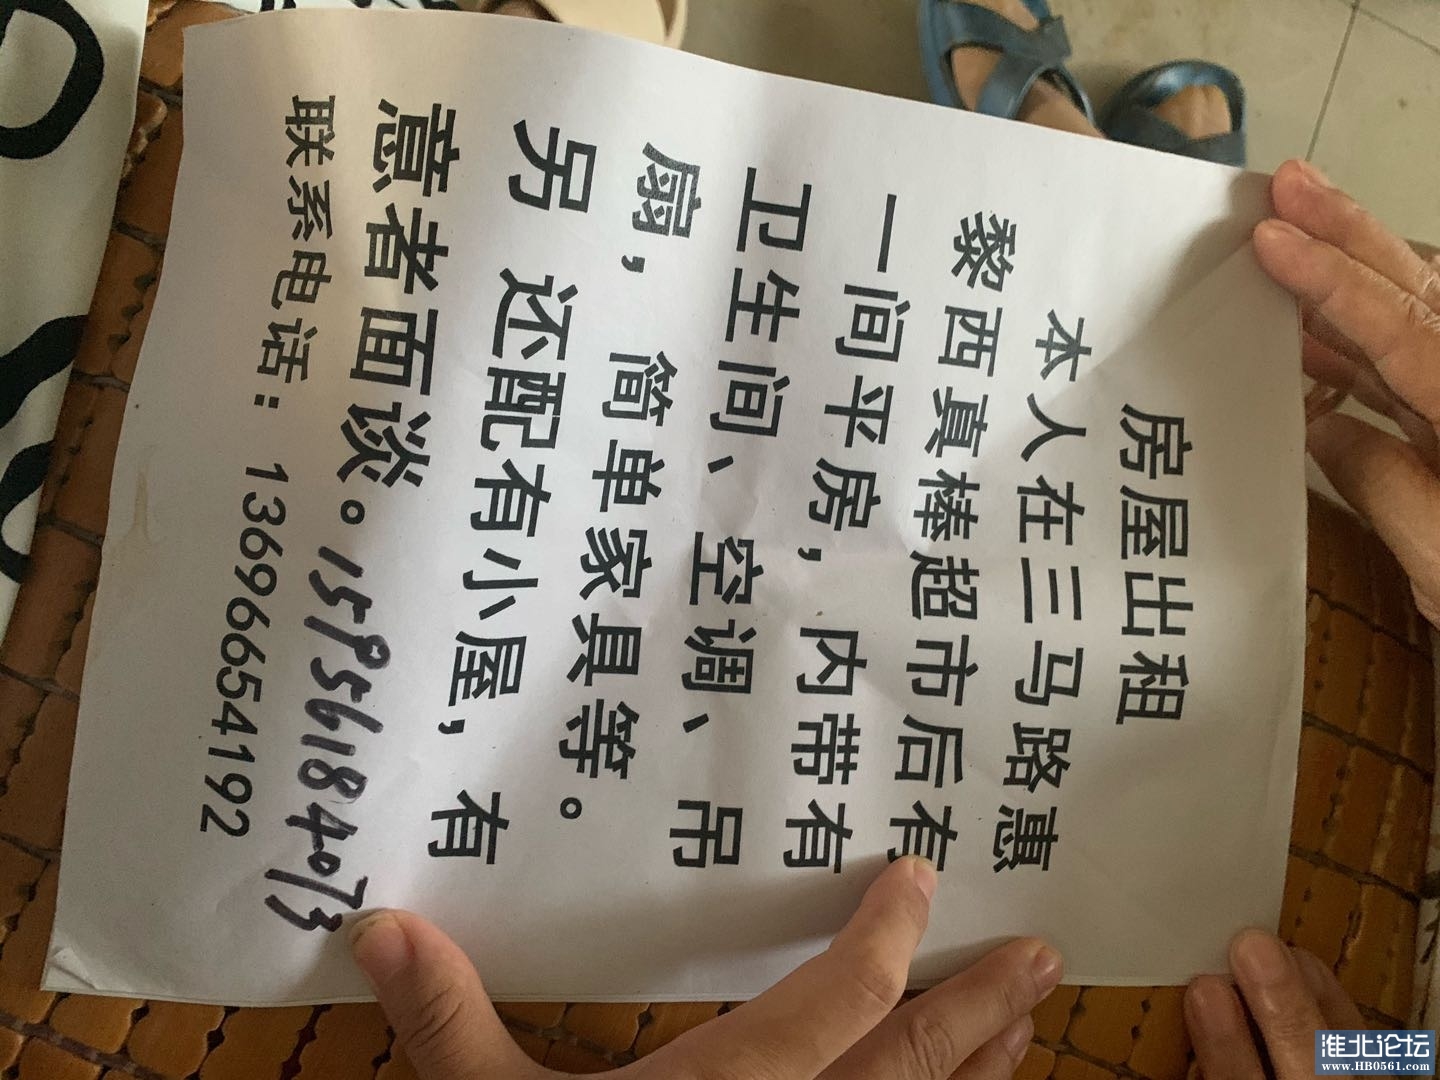 房屋出租
本人在三马路惠
黎西真棒超市后有
一间平房，内带有
卫生间、空调、吊
扇，简单家具等。
另 还配有小屋，有
意者面谈。15956184073
联系电话：13696654192
淮北论坛
www.HB0561.com